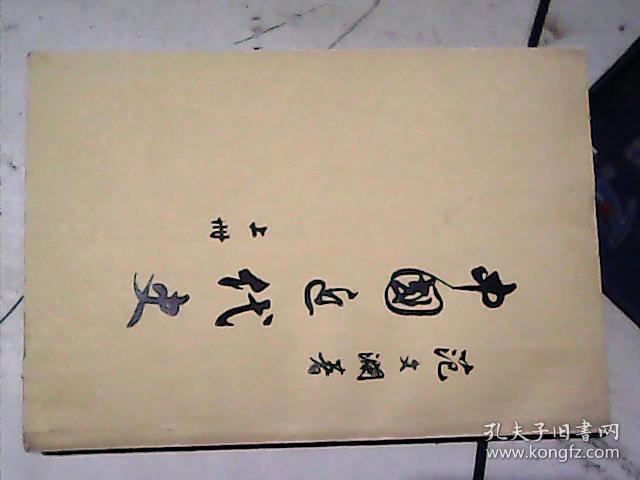 中国近代史
上册
范文澜著
孔夫子旧書网
www.kongfz.com